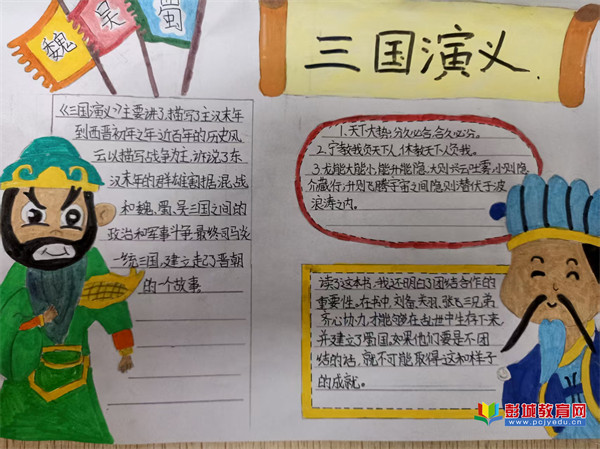 魏
吴
蜀
三国演义
《三国演义》主要讲了描写了主汉末年
到西晋初年之年近百年的历史风
云以描写战争为主,诉说了东
汉末年的群雄割据混战
和魏、蜀、吴三国之间的
政治和军事斗争,最终司马炎
一统三国,建立走了晋朝
的一个故事
1、天下大势,分久必合,合久必分。
2、宁教我负天下人,休教天下人负我。
3、龙能大能小,能升能隐,大则兴云吐雾,小则隐
介藏行,升则飞腾宇宙之间,隐则潜伏于波
浪涛之内。
读了这本书,我还明白了团结合作的
重要性。在书中,刘备、关羽、张飞三兄弟
齐心协力,才能够在乱世中生存下来,
并建立了蜀国,如果他们要是不团
结的话,就不可能取得这和样子
的成就。
彭城教育网
www.pcjyedu.cn